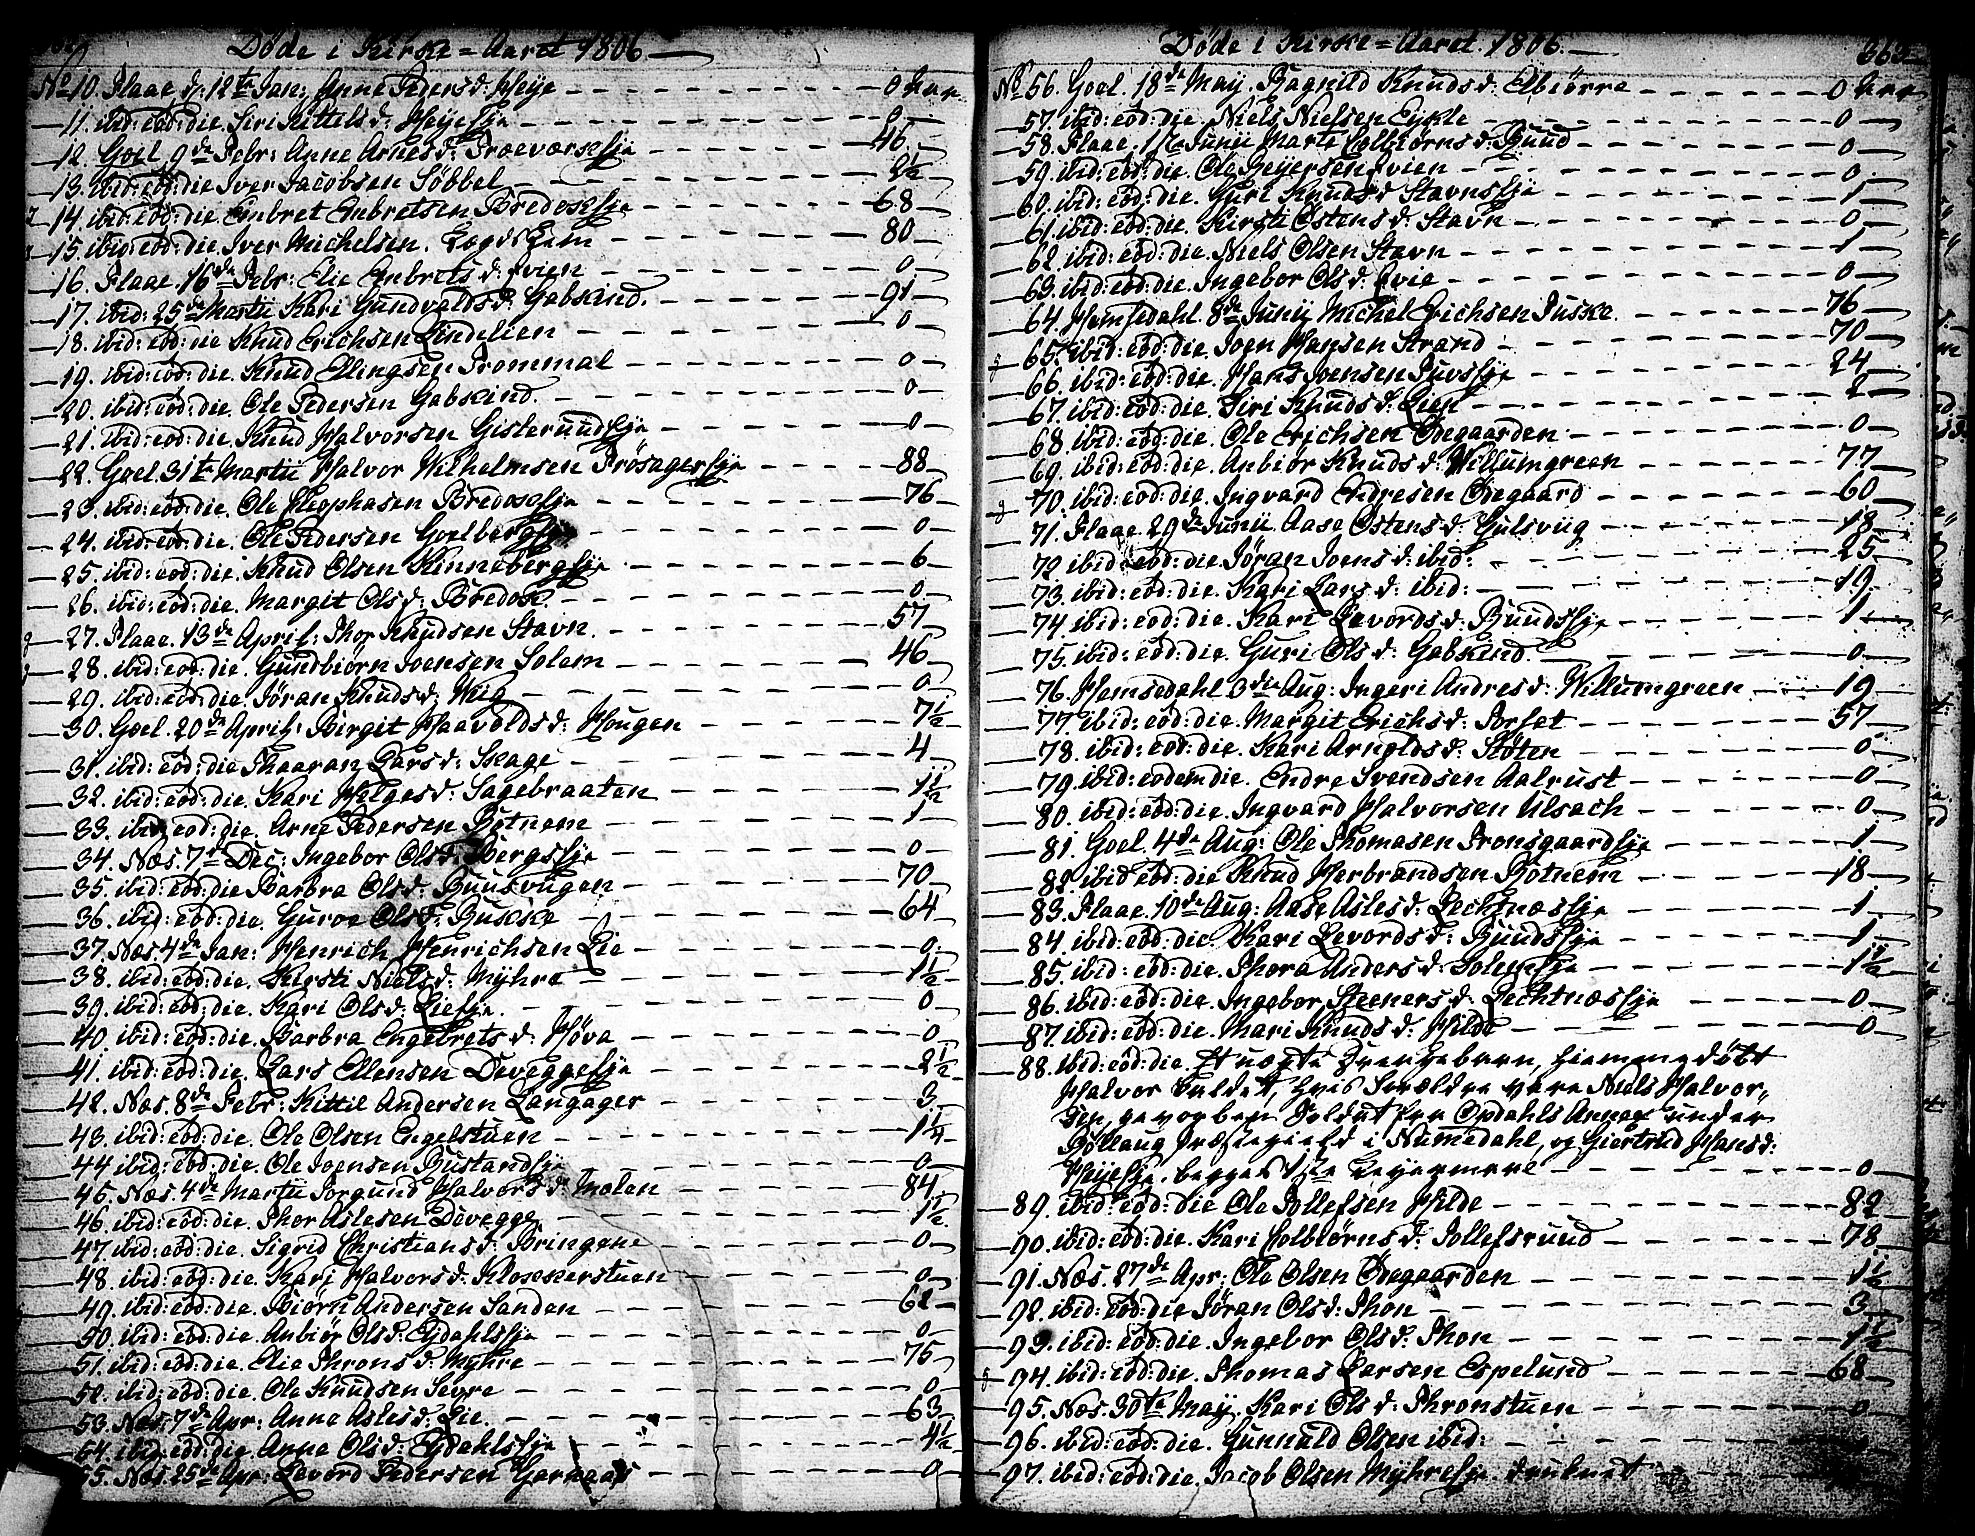 Døde i Kirke=Aaret 1806
No 10. Flaae d: 12te Jan: Anne Peders d: Heye - 0 Aar
11. ibid: eod: die. Siri Kittels d: Heyeseje - 0
12. Goel 9de Febr: Anne Arnes d: Præværseje - 46
13. ibid: eod: die Iver Jacobsen Søbbel - 2½
14. ibid: eod: die. Embret Embretsen Bredokseje - 68
15. ibid: eod: die. Iver Michelsen. - 80
16. Flaae. 16de Febr: Elie Embrets d: Avien - 0
17. ibid: 25de Martii Kari Gundvalds d: Gabskind. - 91
18. ibid: eod: die Knud Erichsen Lindelien - 0
19. ibid: eod: die. Knud Ellingsen Trommal - 0
20. ibid: eod: die. Ole Pedersen Gabskind. - 0
21. ibid: eod: die Knud Halvorsen Gislerundseje - 0
22. Goel. 31te Martii Halvor Wilhelmsen Frøsageseje - 88
23. ibid: eod: die. Ole Stephasen Bredokseje - 76
24. ibid: eod: die. Ole Pedersen Goelbergseje - 0
25. ibid: eod: die. Knud Olsen Kinnebergseje - 6
26. ibid: eod: die. Margit Ols d: Bredok. - 0
27. Flaae. 13de April: Thor Knudsen Stavn. - 57
28. ibid: eod: die. Gundbiørn Joensen Solem - 46
29. ibid: eod: die. Jøran Knuds d: Wiig - 0
30. Goel. 20de April: Birgit Haavolds d: Hougen - 7½
31. ibid: eod: die Thaaran Lars d: Skage - 4
32. ibid: eod: die. Kari Helges d: Sagebraaten - 1½
33. ibid: eod: die. Arne Pedersen Botnem - 1
34. Næs. 7de Dec: Ingebor Ols d: Bergseje - 0
35. ibid: eod: die Barbra Ols d: Buusvugen - 70
36. ibid: eod: die. Guroe Ols d: Buskke - 64
37. Næs. 4de Jan: Henrich Henrichsen Lie - 0
38. ibid: eod: die. Kirsti Niels d: Myhre - 1½
39. ibid: eod: die. Kari Ols d: Lieseje. - 0
40. ibid: eod: die. Barbra Engebrets d: Høva - 0
41. ibid: eod: die. Lars Ellensen Deveggeseje - 2½
42. Næs. 8de Febr: Kittil Andersen Langager - 3
43. ibid: eod: die. Ole Olsen Engelstuen - 1¼
44 ibid: eod: die. Ole Joensen Rustandseje - 0
45. Næs. 4de Martii Jorgund Halvors d: Molen - 84
46. ibid: eod: die. Thor Aslesen Devegge - 1½
47. ibid: eod: die. Sigrid Christians d: Bringene - 0
48. ibid: eod: die. Kari Halvors d: Klokkerstuen - 0
49. ibid: eod: die. Biørn Andersen Sanden - 62
50. ibid: eod: die. Anbiør Ols d: Eydahlseje - 0
51. ibid: eod: die. Elie Throns d: Myhre - 75
52. ibid: eod: die. Ole Knudsen Sevre - 0
53. Næs. 7de Apr: Anne Asles d: Lie. - 63
54. ibid: eod: die. Anne Ols d: Eydahlseje - 4½
55. Næs. 25de Apr: Levord Pedersen Garnaas - 0
Døde i Kirke=Aaret 1806.
No 56. Goel. 18de May. Ragnild Knuds d: Elbiørre - 0 Aar
57. ibid: eod: die. Niels Nielsen Eykle - 0
58. Flaae. 1te Junii Marte Colbiørns d: Ruud - 0
59. ibid: eod: die. Ole Reyersen Avien - 0
60. ibid: eod: die. Guri Knuds d: Stavnseje - 1
61. ibid: eod: die. Kirsti Ostens d: Stavn - 0
62. ibid: eod: die. Niels Olsen Stavn - 1
63. ibid: eod: die. Ingebor Ols d: Avie - 0
64. Hemsedahl. 8de Junij Michel Erichsen Tuske. - 76
65. ibid: eod: die. Joen Hansen Strand - 70
66. ibid: eod: die. Hans Joensen Tuvseje - 24
67. ibid: eod: die. Siri Knuds d: Lien - 2
68. ibid: eod: die. Ole Erichsen Ødegaarden - 0
69. ibid: eod: die. Anbiør Knuds d: Willumgreen - 77
70. ibid: eod: die. Ingvard Endresen Ødegaard - 60
71. Flaae. 29de Junii. Aase Ostens d: Gulsviig - 18
72. ibid: eod: die. Jøran Joens d: ibid: - 25
73. ibid: eod: die. Kari Lars d: ibid: - 19
74. ibid: eod: die. Kari Levords d: Ruudseje - 1
75. ibid: eod: die. Guri Ols d: Gabskind. - 0
76. Hemsedahl. 3die Aug: Ingeri Andres d: Willumgreen - 19
77. ibid: eod: die. Margit Erichs d: Torset - 57
78. ibid: eod: die. Kari Arnolds d: Støten - 0
79. ibid: eodem die. Endre Svendsen Aalrust - 0
80. ibid: eod: die. Ingvard Halvorsen Ulsach - 0
81. Goel. 4de Aug: Ole Thomasen Tronsgaardseje - 1
82. ibid: eod: die Knud Herbrandsen Botnem - 18
83. Flaae. 10de Aug: Aase Asles d: Lechtnæseje - 1
84. ibid: eod: die. Kari Levords d: Ruudseje - 1
85. ibid: eod: die. Thora Anders d: Solemseje - 1½
86. ibid: eod: die. Ingebor Steeners d: Lechtnæseje - 0
87. ibid: eod: die. Mari Knuds d: Hilde - 0
88. ibid: eod: die. Et uægte Drengebarn, hiemmedøbt
Halvor kaldet, hvis Forældre vare Niels Halvor-
sen, geworben Soldat fra Opdahls Annex under
Rollaug Præstegield i Numedahl, og Giertrud Hans d:
Heyeseje. begges 1te Leyermaal - 0
89. ibid: eod: die Ole Tollefsen Hilde - 82
90. ibid: eod: die. Kari Colbiørns d: Tollefsruud - 78
91. Næs. 27de Apr: Ole Olsen Ødegaarden - 1½
92. ibid: eod: die. Jøran Ols d: Thon - 3
93. ibid: eod: die. Ingebor Ols d: Thon - 1½
94. ibid: eod: die. Thomas Larsen Espelund - 68
95. Næs. 30te May. Kari Ols d: Thronstuen - 0
96. ibid: eod: die. Gunnuld Olsen ibid:
97. ibid: eod: die. Jacob Olsen Myhreseje. druknet